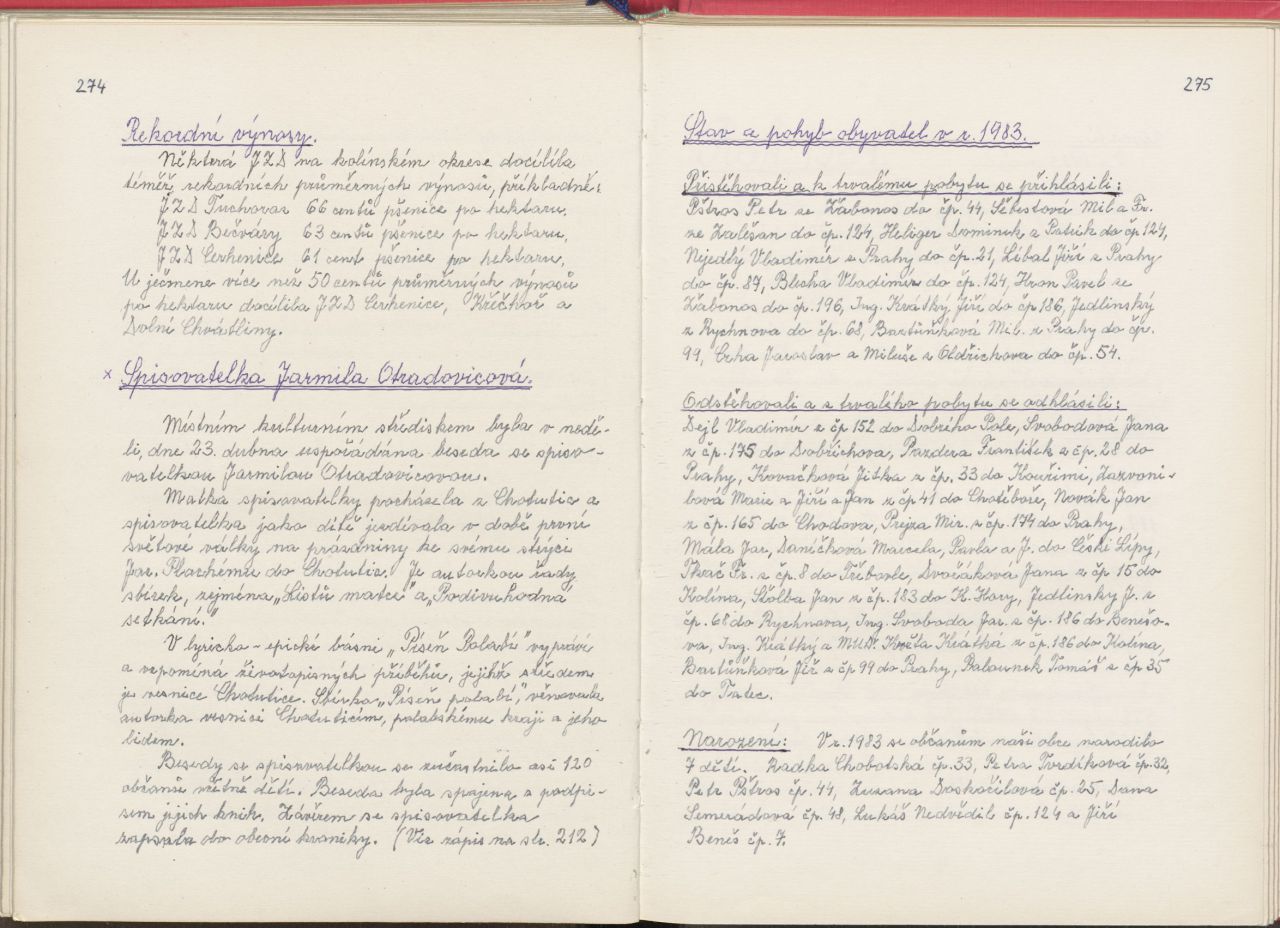 274
Rekordní výnosy.
Některá JZD na kolínském okrese docílila
téměř rekordních průměrných výnosů, příkladně:
JZD Tuchoraz 66 centů pšenice po hektaru,
JZD Bečváry 63 centů pšenice po hektaru,
JZD Cerhenice 61 cent pšenice po hektaru,
U ječmene více než 50 centů průměrných výnosů
po hektaru docílila JZD Cerhenice, Křečhoř a
Dolní Chvátliny.
x Spisovatelka Jarmila Otradovicová.
Místním kulturním střediskem byla v nedě-
li, dne 23. dubna uspořádána beseda se spiso-
vatelkou Jarmilou Otradovicovou.
Matka spisovatelky pocházela z Chotutic a
spisovatelka jako dítě jezdívala v době první
světové války na prázdniny ke svému strýci
Jar. Plachému do Chotutic. Je autorkou řady
sbírek, zejména „Listů matce" a „Podivuhodná
setkání."
V lyricko-epické básni „Píseň Polabí" vypráví
a vzpomíná životopisných příběhů, jejichž středem
je vesnice Chotutice. Sbírku „Píseň polabí", věnovala
autorka vesnici Chotuticím, polabskému kraji a jeho
lidem.
Besedy se spisovatelkou se zúčastnilo asi 120
občanů včetně dětí. Beseda byla spojena s podpi-
sem jejích knih. Závěrem se spisovatelka
zapsala do obecní kroniky. (Viz zápis na str. 212)
275
Stav a pohyb obyvatel v r. 1983.
Přistěhovali a k trvalému pobytu se přihlásili:
Pštros Petr ze Žabonos do čp. 44, Šebestová Mil a Fr.
ze Zalešan do čp. 124, Heliger Dominik a Patrik do čp 124,
Nejedlý Vladimír z Prahy do čp. 21, Líbal Jiří z Prahy
do čp. 87, Blecha Vladimír do čp. 124, Hron Pavel ze
Žabonos do čp. 196, Ing. Krátký Jiří do čp 186, Jedlinský
z Rychnova do čp. 68, Bartůňková Mil. z Prahy do čp.
99, Crha Jaroslav a Miluše z Oldřichova do čp. 54.
Odstěhovali a z trvalého pobytu se odhlásili:
Dejl Vladimír z čp 152 do Dobrého Pole, Svobodová Jana
z čp. 175 do Dobřichova, Pazdera František z čp. 28 do
Prahy, Kovačková Jitka z čp. 33 do Kouřimi, Zazvoni-
lová Marie a Jiří a Jan z čp 41 do Chotěboře, Novák Jan
z čp. 165 do Chodova, Prejza Mir. z čp. 174 do Prahy,
Mála Jar, Daníčková Marcela, Pavla a J. do České Lípy,
Tkač Fr. z čp. 8 do Třebovle, Dvořáková Jana z čp 15 do
Kolína, Štolba Jan z čp. 183 do K. Hory, Jedlinský J. z
čp. 68 do Rychnova, Ing. Svoboda Jar. z čp. 186 do Benešo-
va, Ing. Krátký a MUDr. Květa Krátká z čp. 186 do Kolína,
Bartůňková Jiř z čp 99 do Prahy, Palounek Tomáš z čp 35
do Tatec.
Narození: V r. 1983 se občanům naší obce narodilo
7 dětí. Radka Chobotská čp. 33, Petra Tvrdíková čp. 32,
Petr Pštros čp. 44, Zuzana Doskočilová čp. 25, Dana
Semerádová čp. 48, Lukáš Nedvědil čp. 124 a Jiří
Beneš čp. 7.